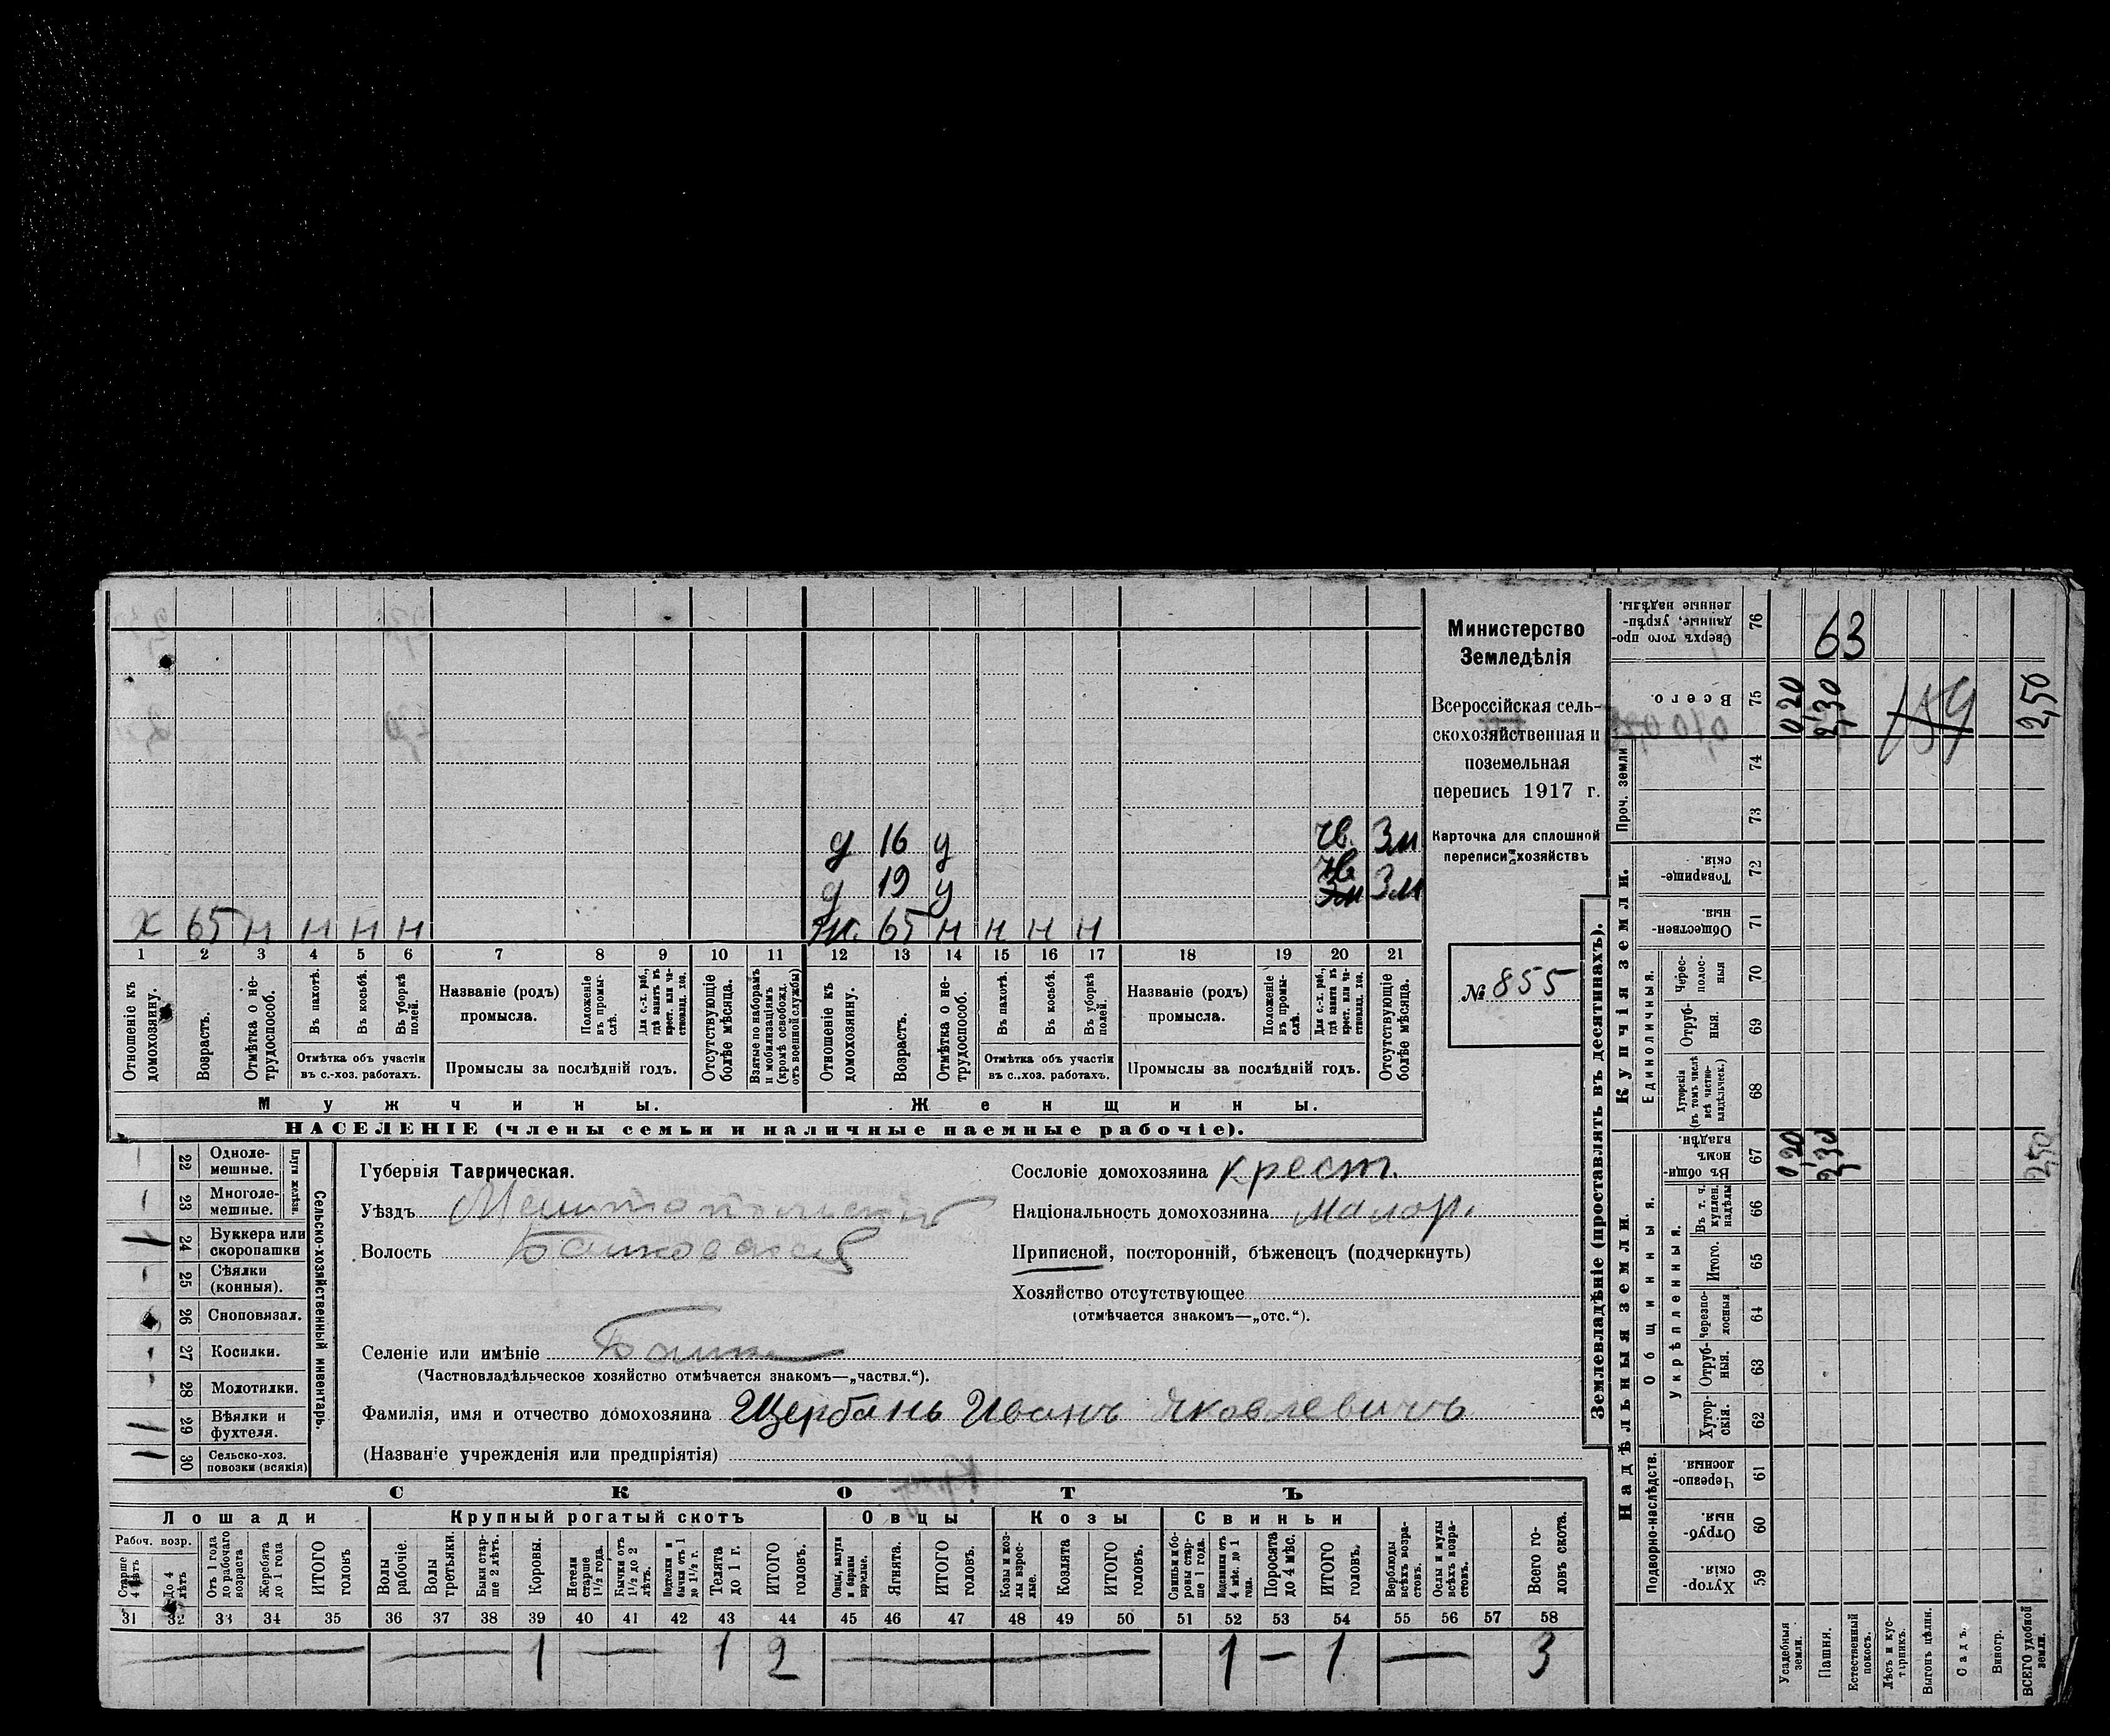 63
0,20 2,30 159 2,50
д 16 у чв. 3м
д 19 у чв. 3м 3м
х 65 н н н н ж. 65 н н н н
1 2 3 4 5 6 7 8 9 10 11 12 13 14 15 16 17 18 19 20 21
Отношеніе къ домохозяину.
Возрастъ.
Отмѣтка о не-трудоспособ.
Въ пахотѣ.
Въ косьбѣ.
Въ уборкѣ полей.
Отмѣтка объ участіи
въ с.-хоз. работахъ.
Названіе (родъ)
промысла.
Положеніе въ промы-слѣ.
Для с.-х. раб., гдѣ занятъ въ крест. или ча-ствовлад. хоз.
Промыслы за послѣдній годъ.
Отсутствующіе болѣе мѣсяца.
Взятые по наборамъ и мобилизаціямъ (кромѣ освобожд. отъ военной службы)
Отношеніе къ домохозяину.
Возрастъ.
Отмѣтка о не-трудоспособ.
Въ пахотѣ.
Въ косьбѣ.
Въ уборкѣ полей.
Отмѣтка объ участіи
въ с..хоз. работахъ.
Названіе (родъ)
промысла.
Положеніе въ промы-слѣ.
Для с.-х. раб., гдѣ занята въ крест. или ча-ствовлад. хоз.
Промыслы за послѣдній годъ.
Отсутствующіе болѣе мѣсяца.
Мужчины. Женщины.
НАСЕЛЕНІЕ (члены семьи и наличные наемные рабочіе).
Министерство
Земледѣлія
Всероссійская сель-
скохозяйственная и
поземельная
перепись 1917 г.
Карточка для сплошной
переписи хозяйствъ
№ 855
22 Одноле-мешные.
23 Многоле-мешные.
Плуги желѣзн.
24 Буккера или скоропашки
25 Сѣялки (конныя).
26 Сноповязал.
27 Косилки.
28 Молотилки.
29 Вѣялки и фухтеля.
30 Сельско-хоз. повозки (всякія)
Сельско-хозяйственный инвентарь.
Губернія Таврическая.
Уѣздъ Мелитопольскій
Волость Балковская
Селеніе или имѣніе Балки
(Частновладѣльческое хозяйство отмѣчается знакомъ—„частвл.“).
Фамилія, имя и отчество домохозяина Щербань Иванъ Яковлевичъ
(Названіе учрежденія или предпріятія)
Сословіе домохозяина крест.
Національность домохозяина малор.
Приписной, посторонній, бѣженецъ (подчеркнуть)
Хозяйство отсутствующее
(отмѣчается знакомъ—„отс.“).
СКОТЪ
Лошади Крупный рогатый скотъ Овцы Козы Свиньи
Рабоч. возр.
Старше 4 лѣтъ
До 4 лѣтъ
Отъ 1 года до рабочаго возраста
Жеребята до 1 года
ИТОГО головъ
Волы рабочіе.
Волы третьяки.
Быки стар-ше 2 лѣтъ.
Коровы.
Нетели старше 1½ года.
Бычки отъ 1½ до 2 лѣтъ.
Подтелки и бычки отъ 1 до 1½ г.
Телята до 1 г.
ИТОГО головъ.
Овцы, валухи и бараны взрослые.
Ягнята.
ИТОГО головъ.
Козы и коз-лы взрос-лые.
Козлята
ИТОГО головъ.
Свиньи и бо-ровы стар-ше 1 года.
Подсвинки отъ 4 мѣс. до 1 года.
Поросята до 4 мѣс.
ИТОГО головъ.
Верблюды всѣхъ возра-стовъ.
Ослы и мулы всѣхъ возра-стовъ.
Всего го-ловъ скота.
31 32 33 34 35 36 37 38 39 40 41 42 43 44 45 46 47 48 49 50 51 52 53 54 55 56 57 58
— — 1 — 1 2 — 1 — 1 — 3
Землевладѣніе (проставлять въ десятинахъ).
Надѣльныя земли. Купчія земли. Проч. земли
Подворно-наслѣдств. Общинныя. Единоличныя.
Укрѣпленныя.
76 Сверхъ того про-данные, укрѣп-ленные надѣлы.
75 Всего.
74
73
72 Товарище-скія.
71 Обществен-ныя.
70 Черес-полос-ныя
69 Отруб-ныя.
68 Хуторскія (въ томъ числѣ всѣ частно-владѣльческ.)
67 Въ общин-номъ владѣн. 0,20 2,30 2,50
66 Въ т. ч. куплен. надѣлы
65 Итого.
64 Черезпо-лосныя
63 Отруб-ныя.
62 Хутор-скія.
61 Черезпо-лосныя.
60 Отруб-ныя.
59 Хутор-скія.
Усадебныя земли.
Пашня.
Естественный покосъ.
Лѣсъ и кус-тарникъ.
Выгонъ цѣлин.
Садъ.
Виногр.
ВСЕГО удобной земли.